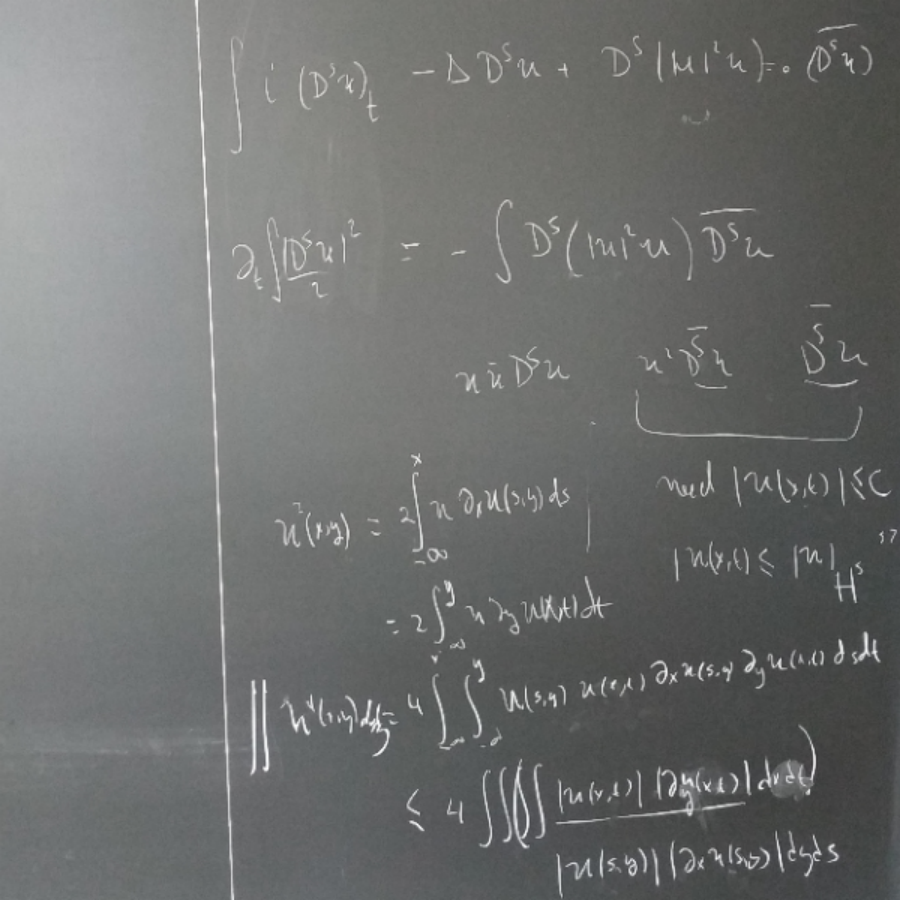 ∫ i (Dˢu)ₜ − Δ Dˢu + Dˢ(|u|²u) = 0 · (\overline{Dˢu})
∂ₜ ∫ |Dˢu|²/2 = − ∫ Dˢ(|u|²u) \overline{Dˢu}
u ū Dˢu u² \overline{Dˢu} \overline{Dˢu}
u²(x,y) = 2 ∫_{-∞}^{x} u ∂ₓu(s,y) ds need |u(x,t)| ≤ C
|u(x,t) ≤ |u|_{Hˢ} s>
= 2 ∫_{-∞}^{y} u ∂_y u(x,t) dt
∬ u⁴(x,y) dxdy = 4 ∫_{-∞}^{x} ∫_{-∞}^{y} u(s,y) u(x,t) ∂ₓu(s,y) ∂_y u(x,t) dsdt
≤ 4 ∫∫∫∫ |u(x,t)| |∂_y u(x,t)| dxdt)
|u(s,y)| |∂ₓu(s,y)| dyds